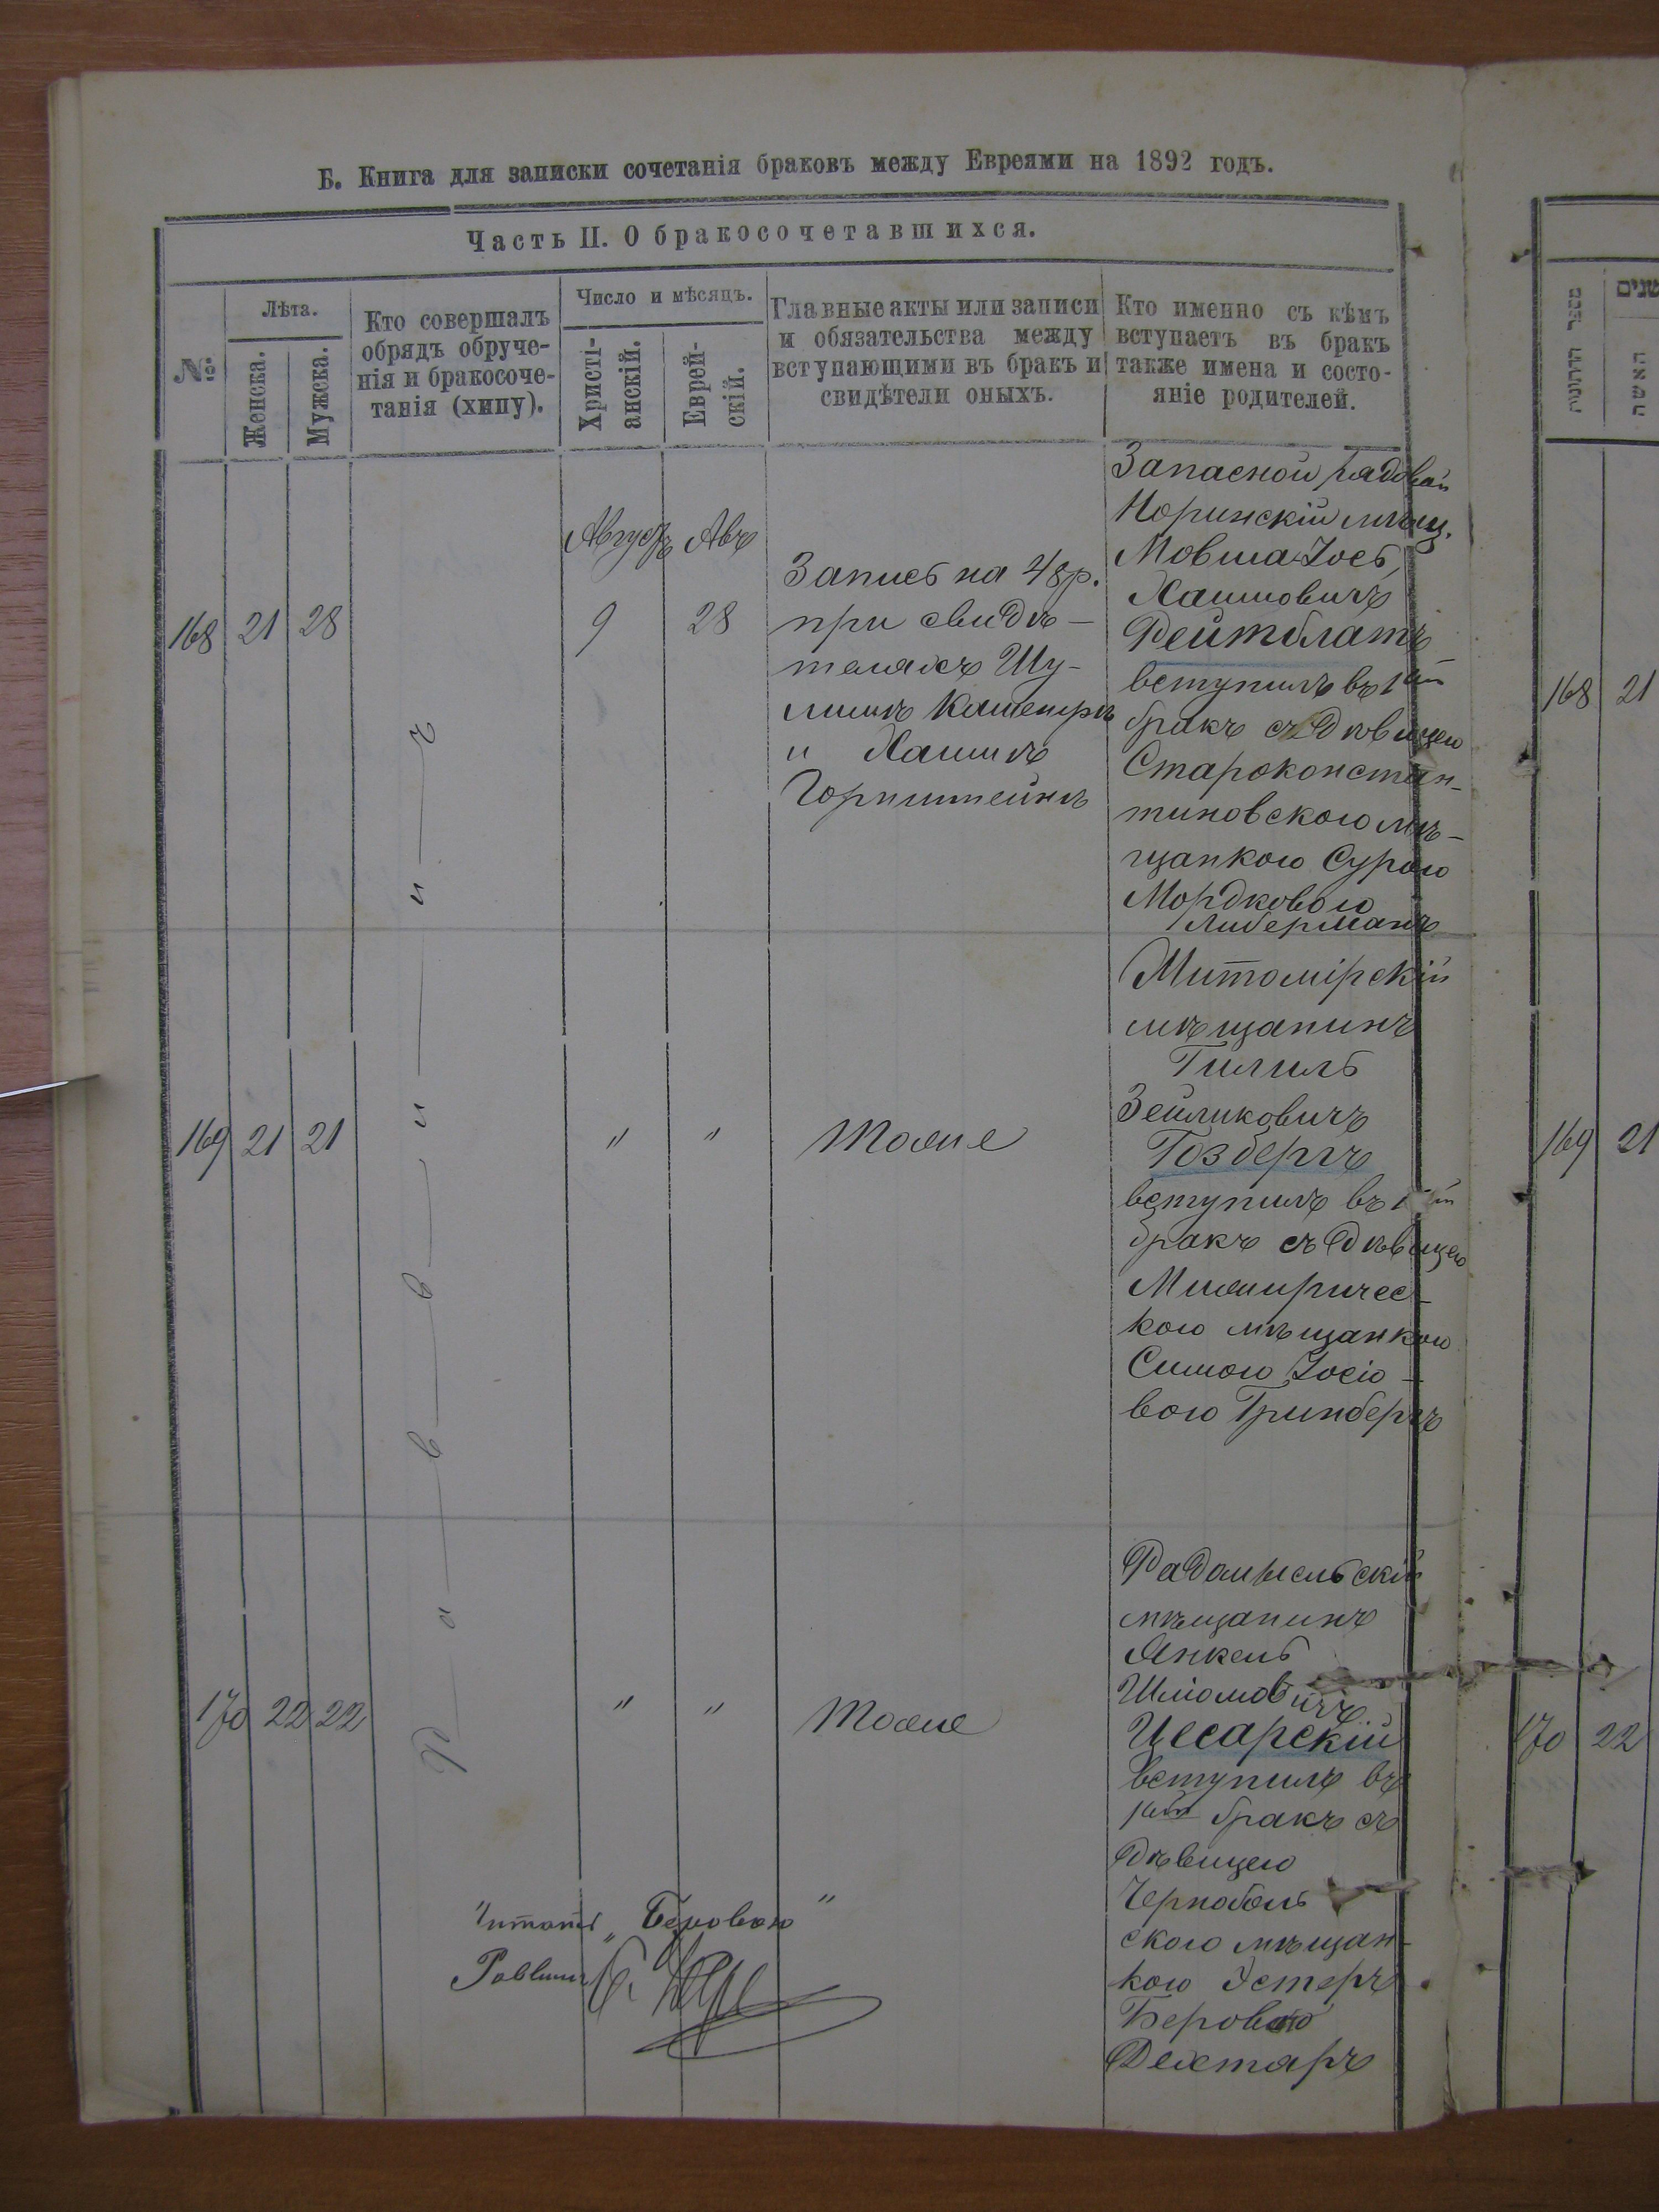 Б. Книга для записки сочетанія браковъ между Евреями на 1892 годъ.
Часть II. О бракосочетавшихся.
№
Лѣта.
Женска.
Мужска.
Кто совершалъ
обрядъ обруче-
нія и бракосоче-
танія (хипу).
Число и мѣсяцъ.
Христі-
анскій.
Еврей-
скій.
Главные акты или записи
и обязательства между
вступающими въ бракъ и
свидѣтели оныхъ.
Кто именно съ кѣмъ
вступаетъ въ бракъ
также имена и состо-
яніе родителей.
Раввинъ
168 21 28
Августъ Авъ
9 28
Запись на 48 р.
при свидѣ-
теляхъ Шу-
лимъ
и Хаимъ
Горнштейнъ
Запасной рядовой
Норинскій мѣщ.
Мовша-Іось
Хаимовичъ
Фейтблатъ
вступилъ въ 1ый
бракъ съ дѣвицею
Староконстан-
тиновскою мѣ-
щанкою Сурою
Мордковою
Либерманъ
169 21 21
" "
Тоже
Житомірскій
мѣщанинъ
Гилиль
Зейликовичъ
Гозбергъ
вступилъ въ 1ый
бракъ съ дѣвицею
Межиричес-
кою мѣщанкою
Симою Іосіо-
вою Гринбергъ
170 22 22
" "
Тоже
Радомысльскій
мѣщанинъ
Янкель
Шліомовичъ
Цесарскій
вступилъ въ
1ый бракъ съ
дѣвицею
Чернобыль
скою мѣщан-
кою Эстеръ
Беровою
Дехтяръ
Читать „Беровою"
Раввинъ
מספר החתונות
שנים
האשה
168 21
169 21
170 22